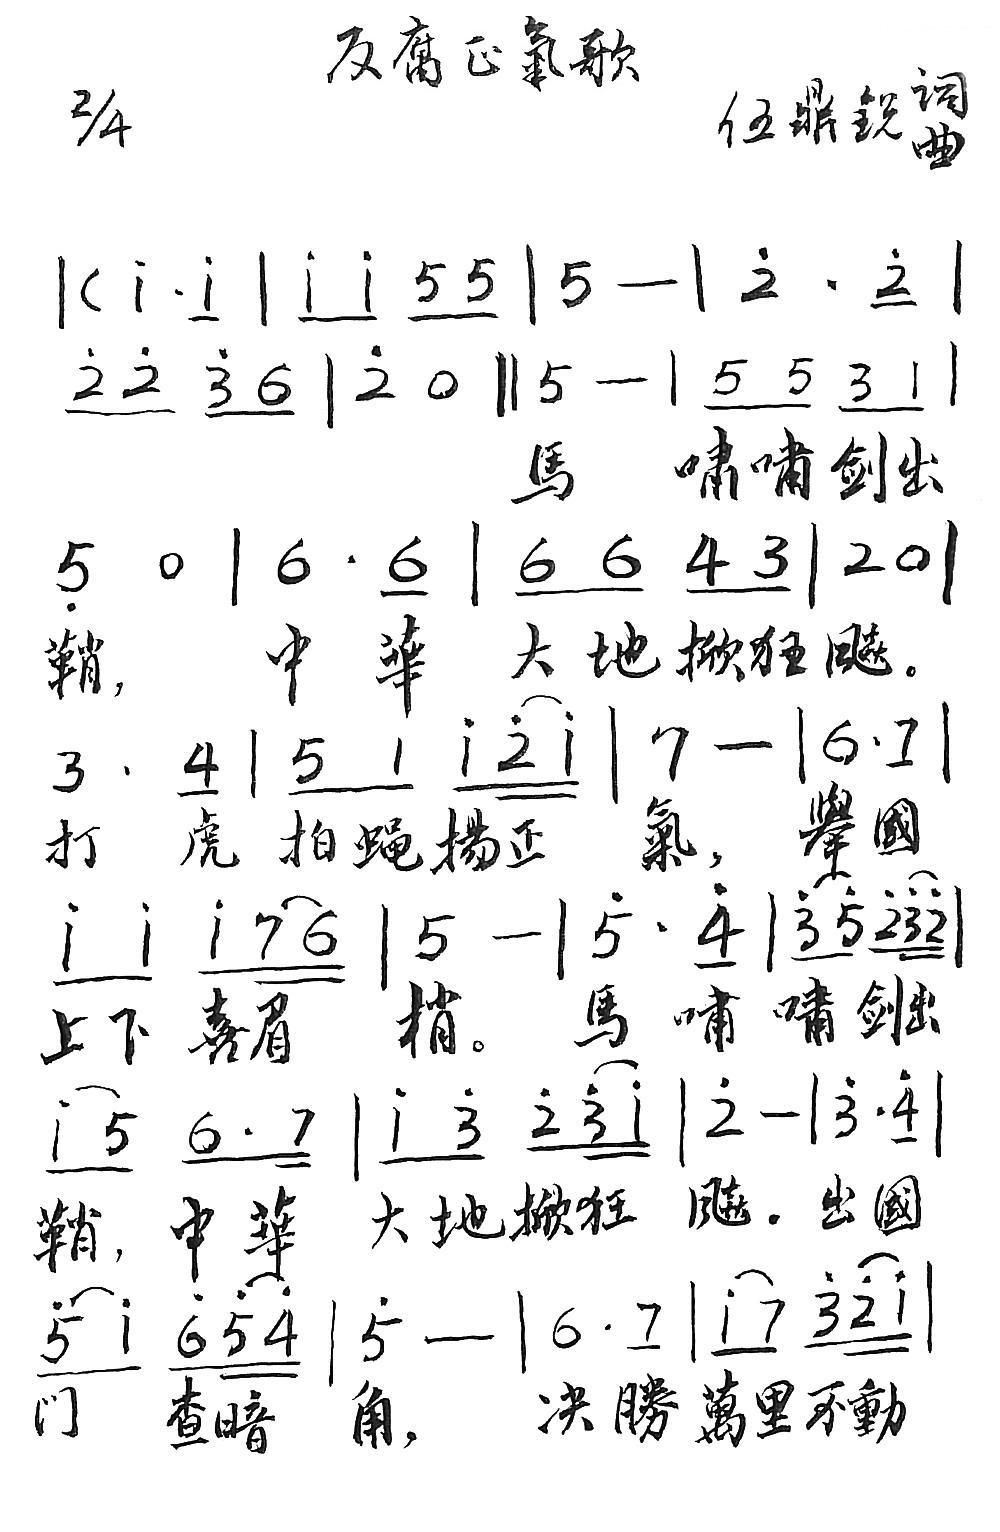 反腐正氣歌
2/4
伍鼎銳詞曲
|( i̇ · i̇ | i̇ i̇ 5 5 | 5 — | 2̇ · 2̇ |
2̇ 2̇ 3̇ 6 | 2̇ 0 || 5 — | 5 5 3 1 |
馬 嘯嘯劍出
5̣ 0 | 6 · 6 | 6 6 4 3 | 2 0 |
鞘， 中 華 大地掀狂飈。
3 · 4 | 5 1 i̇ 2̇ i̇ | 7 — | 6 · 7 |
打 虎 拍蠅揚正 氣， 舉國
i̇ i̇ i̇ 7 6 | 5 — | 5̇ · 4̇ | 3̇ 5̇ 2̇ 3̇ 2̇ |
上下 喜眉 梢。 馬 嘯 嘯劍出
i̇ 5 6 · 7 | i̇ 3̇ 2̇ 3̇ i̇ | 2̇ — | 3̇ · 4̇ |
鞘， 中華 大地掀狂 飈。 出國
5̇ i̇ 6̇ 5̇ 4̇ | 5̇ — | 6 · 7 | i̇ 7 3̇ 2̇ i̇ |
门 查暗 角， 决勝萬里不動